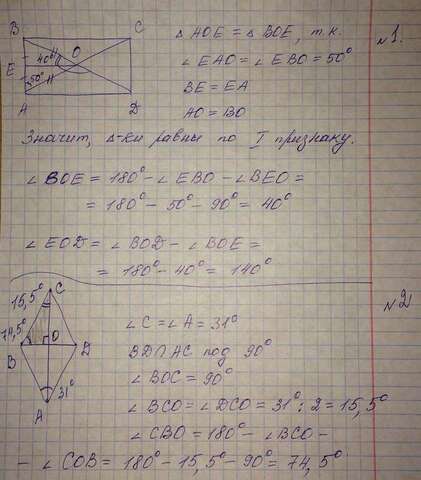 №1.
B C
O
E 40°
50°
A D
△ AOE = △ BOE, т.к.
∠ EAO = ∠ EBO = 50°
BE = EA
AO = BO
Значит, △-ки равны по I признаку.
∠ BOE = 180° - ∠ EBO - ∠ BEO =
= 180° - 50° - 90° = 40°
∠ EOD = ∠ BOD - ∠ BOE =
= 180° - 40° = 140°
№2
C
15,5°
74,5°
B O D
A 31°
∠ C = ∠ A = 31°
BD ∩ AC под 90°
∠ BOC = 90°
∠ BCO = ∠ DCO = 31° : 2 = 15,5°
∠ CBO = 180° - ∠ BCO -
- ∠ COB = 180° - 15,5° - 90° = 74,5°